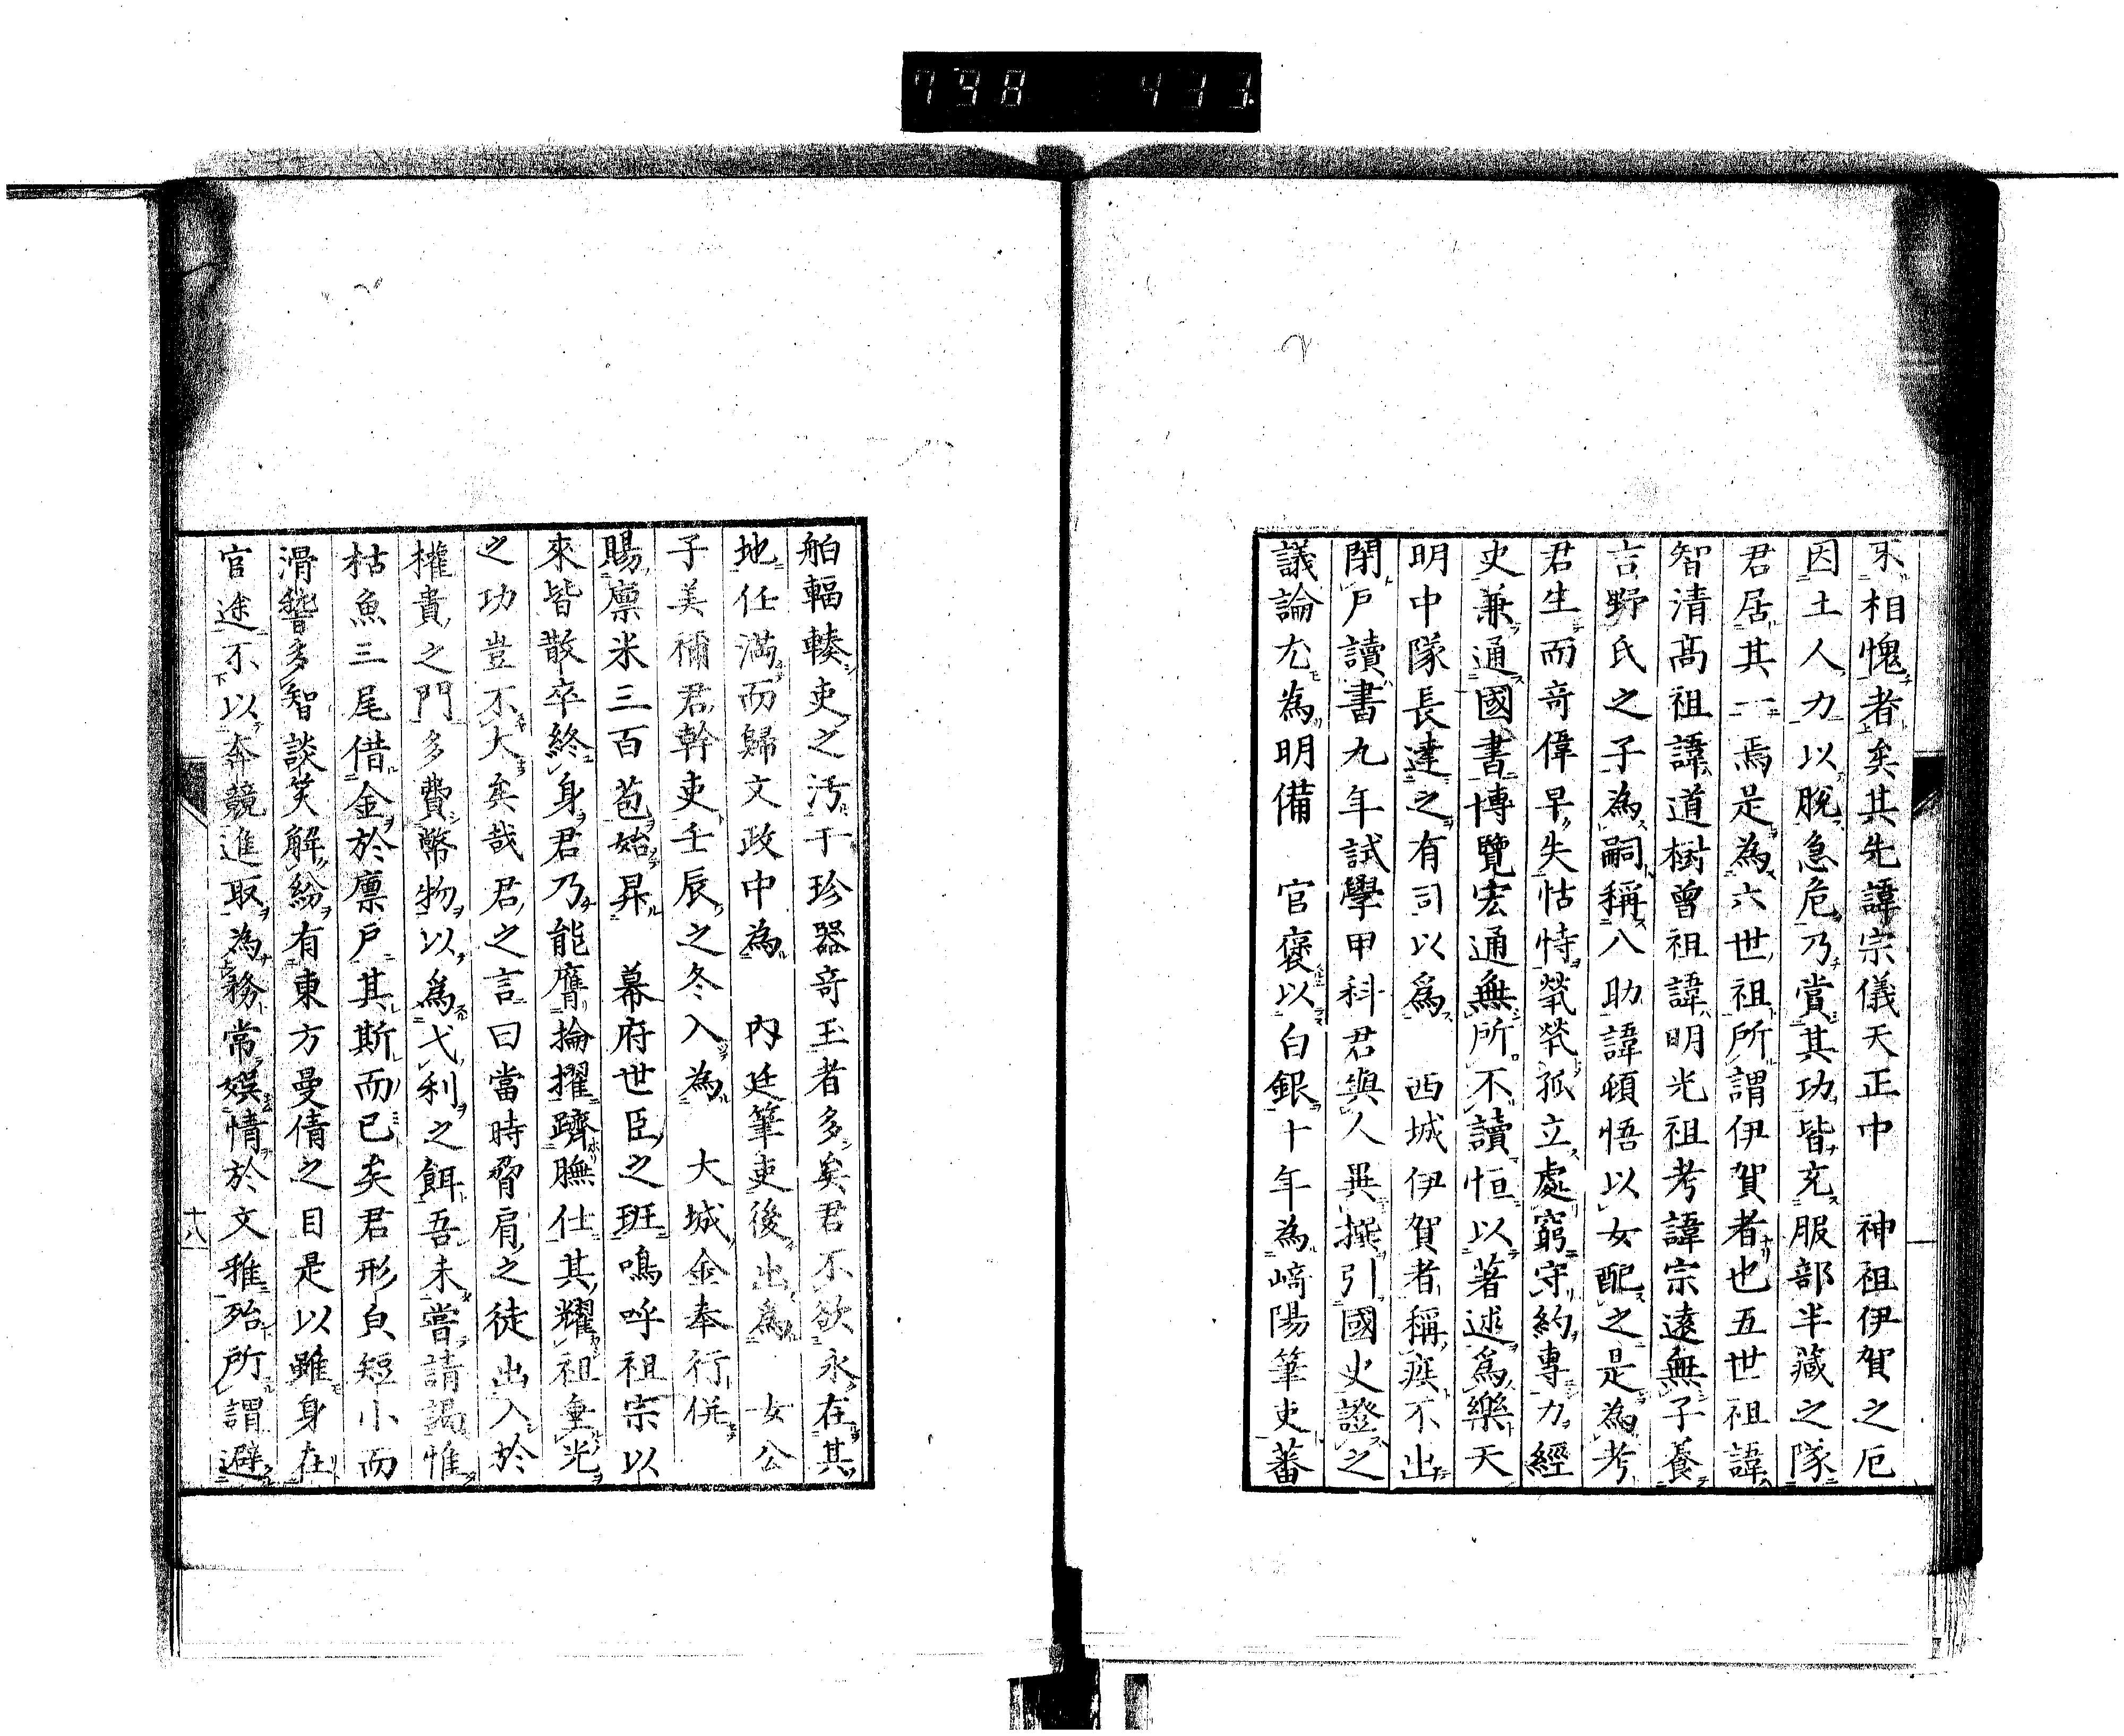 798 433
不相愧者矣其先諱宗儀天正中　神祖伊賀之厄
因土人力以脫急危乃賞其功皆充服部半藏之隊
君居其一焉是為六世祖所謂伊賀者也五世祖諱
智清高祖諱道樹曾祖諱明光祖考諱宗遠無子養
吉野氏之子為嗣稱八助諱頓悟以女配之是為考
君生而奇偉早失怙恃煢煢孤立處窮守約專力經
史兼通國書博覽宏通無所不讀恒以著述爲樂天
明中隊長達之有司以爲　西城伊賀者稱疾不出
閉戶讀書九年試學甲科君與人異撰引國史證之
議論尤為明備　官褒以白銀十年為﨑陽筆吏蕃
舶輻輳吏之汚于珍器奇玉者多矣君不欲永在其
地任滿而歸文政中為　內廷筆吏後出爲　女公
子美禰君幹吏壬辰之冬入為　大城金奉行併
賜廪米三百苞始昇　幕府世臣之班鳴呼祖宗以
來皆散卒終身君乃能膺掄擢躋膴仕其耀祖垂光
之功豈不大矣哉君之言曰當時脅肩之徒出入於
權貴之門多費幣物以爲弋利之餌吾未嘗請謁惟
枯魚三尾借金於廪戶其斯而已矣君形貟短小而
滑稽多智談笑解紛有東方曼倩之目是以雖身在
官途不以奔競進取為務常娯情於文雅殆所謂避
十八